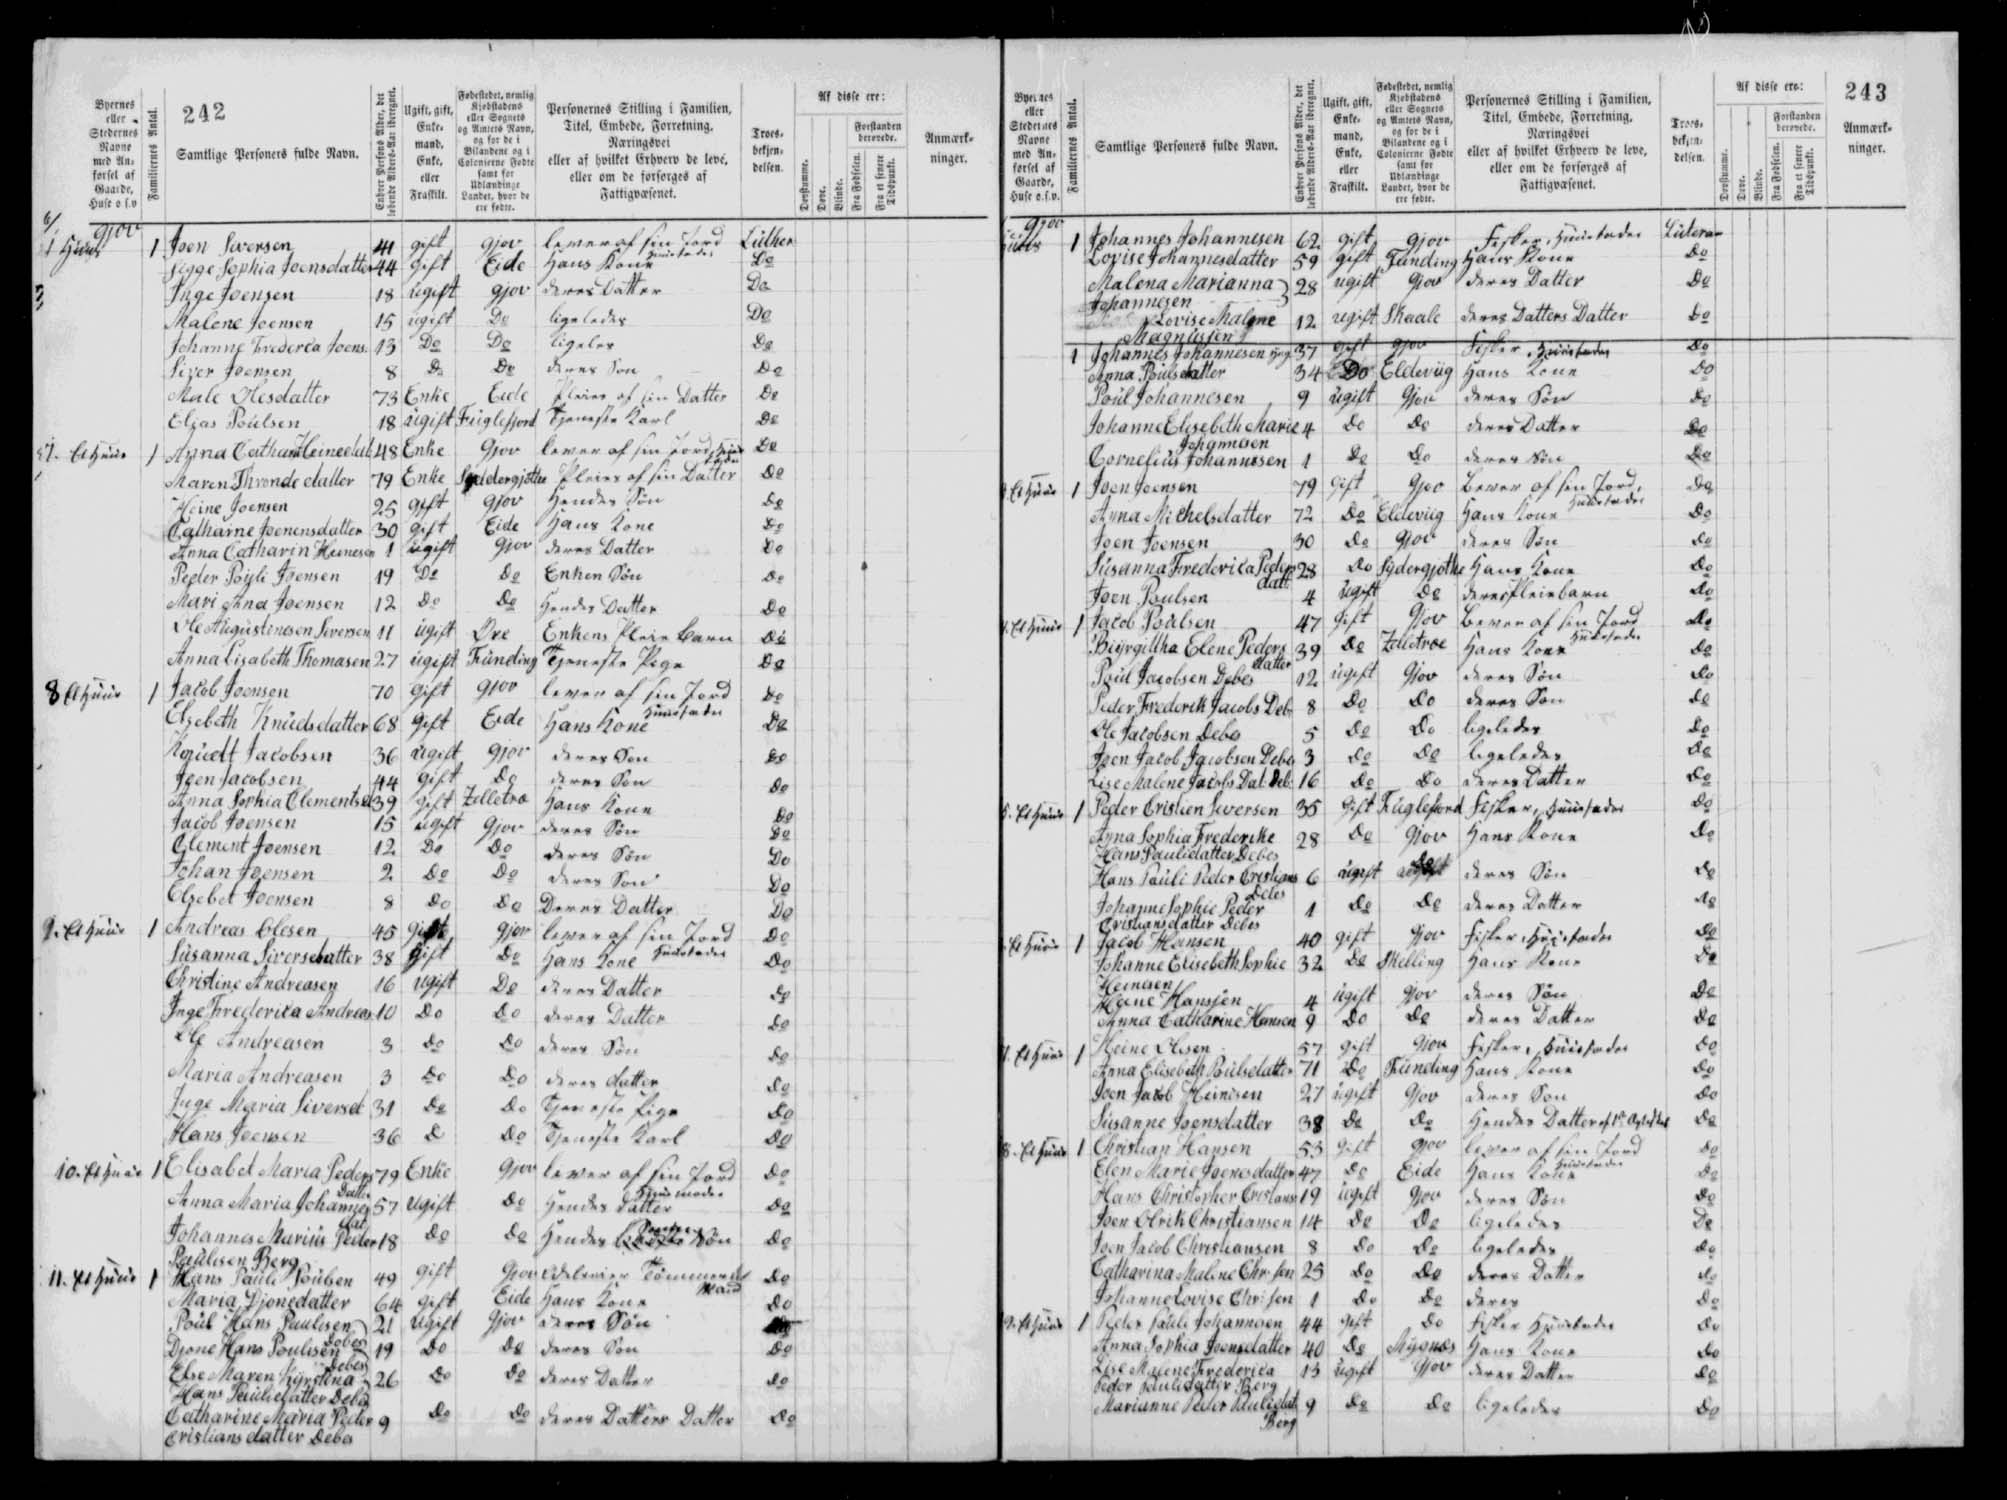 242
Byernes eller Stedernes Navne med Anførsel af Gaarde, Huse o.s.v.
Familiernes Antal.
Samtlige Personers fulde Navn.
Enhver Persons Alder, det løbende Alders-Aar iberegnet.
Ugift, gift, Enkemand, Enke, eller Fraskilt.
Fødestedet, nemlig Kjøbstadens eller Sognets og Amtets Navn, og for de i Bilandene og i Colonierne Fødte samt for Udlændinge Landet, hvor de ere fødte.
Personernes Stilling i Familien, Titel, Embede, Forretning, Næringsvei eller af hvilket Erhverv de leve, eller om de forsørges af Fattigvæsenet.
Troesbekjendelsen.
Af disse ere:
Døvstumme.
Døve.
Blinde.
Forstanden berøvede.
Fra Fødselen.
Fra et senere Tidspunkt.
Anmærkninger.
Gjov
Huus 1 Joen Siversen 41 gift gjov lever af sin Jord Huusfader Luther
Sigge Sophia Joensdatter 44 gift Eide Hans Kone Do
Inge Joensen 18 ugift gjov deres Datter Do
Malene Joensen 15 ugift Do ligeledes Do
Johanne Frederca Joens. 13 Do Do ligeles Do
Siver Joensen 8 Do Do deres Son Do
Male Olesdatter 73 Enke Eide Pleies af sin Datter Do
Elias Poulsen 18 ugift Fuglefjord Tjeneste Karl Do
Et Huus 1 Anna Cathar Heinedat 48 Enke Gjov lever af sin Jord Do
Maren Thronde datter 79 Enke Sydergjothe Pleies af sin Datter Do
Heine Joensen 25 gift gjov Hendes Son Do
Catharne Joenensdatter 30 gift Eide Hans Kone Do
Anna Catharin Heinesen 1 ugift gjov deres Datter Do
Peder Poyli Joensen 19 Do Do Enken Søn Do
Mari Anna Joensen 12 Do Do Hendes Datter Do
Ole Augustinesen Siversen 11 ugift Øre Enkens Pleie Barn Do
Anna Lisabeth Thomasen 27 ugift Funding Tjeneste Pige Do
8 Et Huus 1 Jacob Joensen 70 gift gjov lever af sin Jord Huusfader Do
Elsebeth Knudsdatter 68 gift Eide Hans Kone Do
Knudt Jacobsen 36 ugift gjov deres Son Do
Joen Jacobsen 44 gift Do deres Son Do
Anna Sophia Clementsd 39 gift Zelletræ Hans Kone Do
Jacob Joensen 15 ugift Gjov deres Søn Do
Clement Joensen 12 Do Do deres Søn Do
Johan Joensen 2 Do Do deres Son Do
Elsebet Joensen 8 Do Do Deres Datter Do
9. Et Huus 1 Andreas Olesen 45 gift gjov lever af sin Jord Huusfader Do
Susanna Siversdatter 38 gift Do Hans Kone Do
Christine Andreasen 16 ugift Do deres Datter Do
Inge Frederica Andreas 10 Do Do deres Datter Do
Ole Andreasen 3 Do Do deres Søn Do
Maria Andreasen 3 Do Do deres datter Do
Inge Maria Siversd 31 Do Do Tjeneste Pige Do
Hans Joensen 36 D Do Tjeneste Karl Do
10. Et Huus 1 Elisabet Maria Peders Datter 79 Enke Gjov lever af sin Jord Huusmoder Do
Anna Maria Johannes dat 57 ugift Do Hendes Datter Do
Johannes Marius Peder Paulisen Berg 18 Do Do Hendes Søn Do
11. Et Huus 1 Hans Pauli Poulsen 49 gift Gjov Tømmermand Do
Maria Djonedatter 64 gift Eide Hans Kone Do
Poul Hans Paulisen Debes 21 ugift gjov deres Søn
Djone Hans Poulisen Debes 19 Do Do deres Son Do
Else Maren Kyrstina Hans Paulidatter Debes 26 Do Do deres Datter Do
Catharine Maria Peder Cristians datter Debes 9 Do Do deres Datters Datter Do
243
Byernes eller Stedernes Navne med Anførsel af Gaarde, Huse o.s.v.
Familiernes Antal.
Samtlige Personers fulde Navn.
Enhver Persons Alder, det løbende Alders-Aar iberegnet.
Ugift, gift, Enkemand, Enke, eller Fraskilt.
Fødestedet, nemlig Kjøbstadens eller Sognets og Amtets Navn, og for de i Bilandene og i Colonierne Fødte samt for Udlændinge Landet, hvor de ere fødte.
Personernes Stilling i Familien, Titel, Embede, Forretning, Næringsvei eller af hvilket Erhverv de leve, eller om de forsørges af Fattigvæsenet.
Troesbekjendelsen.
Af disse ere:
Døvstumme.
Døve.
Blinde.
Forstanden berøvede.
Fra Fødselen.
Fra et senere Tidspunkt.
Anmærkninger.
Gjov
Huus 1 Johannes Johannesen 62 gift gjov Fisker, Huusfader Luteran
Lovise Johannesdatter 59 gift Funding Hans Kone Do
Malena Marianna Johannesen 28 ugift Gjov deres Datter Do
Lovise Malene Magnussen 12 ugift Skaale deres Datters Datter Do
1 Johannes Johannesen yng. 37 gift gjov Fisker, Huusfader Do
Anna Poulsdatter 34 Do Eldeviig Hans Kone Do
Poul Johannesen 9 ugift Gjov deres Søn Do
Johanne Elisebeth Marie Johannesen 4 Do Do deres Datter Do
Cornelius Johannesen 1 Do Do deres Søn Do
Et Huus 1 Joen Joensen 79 gift Gjov Lever af sin Jord, Huusfader Do
Anna Michelsdatter 72 Do Eldeviig Hans Kone Do
Joen Joensen 30 Do Gjov deres Søn Do
Susanna Frederica Peders datt 28 Do Sydergjothe Hans Kone Do
Joen Poulsen 4 ugift Do deres Pleiebarn Do
Et Huus 1 Jacob Poulsen 47 gift Gjov Lever af sin Jord Huusfader Do
Biyrgittha Elene Peders datter 39 Do Zelletræ Hans Kone Do
Poul Jacobsen Debes 12 ugift Gjov deres Søn Do
Peder Frederik Jacobs Deb. 8 Do Do deres Son Do
Ole Jacobsen Debes 5 Do Do ligeledes Do
Joen Jacob Jacobsen Debes 3 Do Do ligeledes Do
Lise Malene Jacobs Dat. Deb. 16 Do Do deres Datter Do
5. Et Huus 1 Peder Cristien Siversen 35 gift Fuglefiord Fisker, Huusfader Do
Anna Sophia Frederike Hans Paulidatter Debes 28 Do Gjov Hans Kone Do
Hans Pauli Peder Cristians Debes 6 ugift Do deres Søn Do
Johanne Sophie Peder Cristiansdatter Debes 1 Do Do deres Datter Do
Et Huus 1 Jacob Hansen 40 gift Gjov Fisker, Huusfader Do
Johanne Elisebeth Sophie Heinesen 32 Do Skelling Hans Kone Do
Heine Hansen 4 ugift gjov deres Søn Do
Anna Catharine Hansen 9 Do Do deres Datter Do
Et Huus 1 Heine Olsen 57 gift Gjov Fisker, Huusfader Do
Anna Elisebeth Poulsdatter 71 Do Funding Hans Kone Do
Joen Jacob Heinesen 27 ugift Gjov deres Son Do
Susanne Joensdatter 38 Do Do Hendes Datter af 1ste Do
8. Et Huus 1 Christian Hansen 53 gift gjov lever af sin Jord Huusfader Do
Elen Marie Joenesdatter 47 Do Eide Hans Kone Do
Hans Christopher Cristians 19 ugift Gjov deres Søn Do
Joen Olrik Christiansen 14 Do Do ligeledes Do
Joen Jacob Christiansen 8 Do Do ligeledes Do
Catharina Maline Chr: sen 25 Do Do deres Datter Do
Johanne Lovise Chr: sen 1 Do Do deres Do
9. Et Huus 1 Peder Pauli Johannesen 44 gift Do Fisker Huusfader Do
Anna Sophia Joensdatter 40 Do Mygnæs Hans Kone Do
Lise Malene Frederica Peder Paulisdatter Berg 13 ugift Gjov deres Datter Do
Marianne Peder Paulidat Berg 9 Do Do ligeledes Do